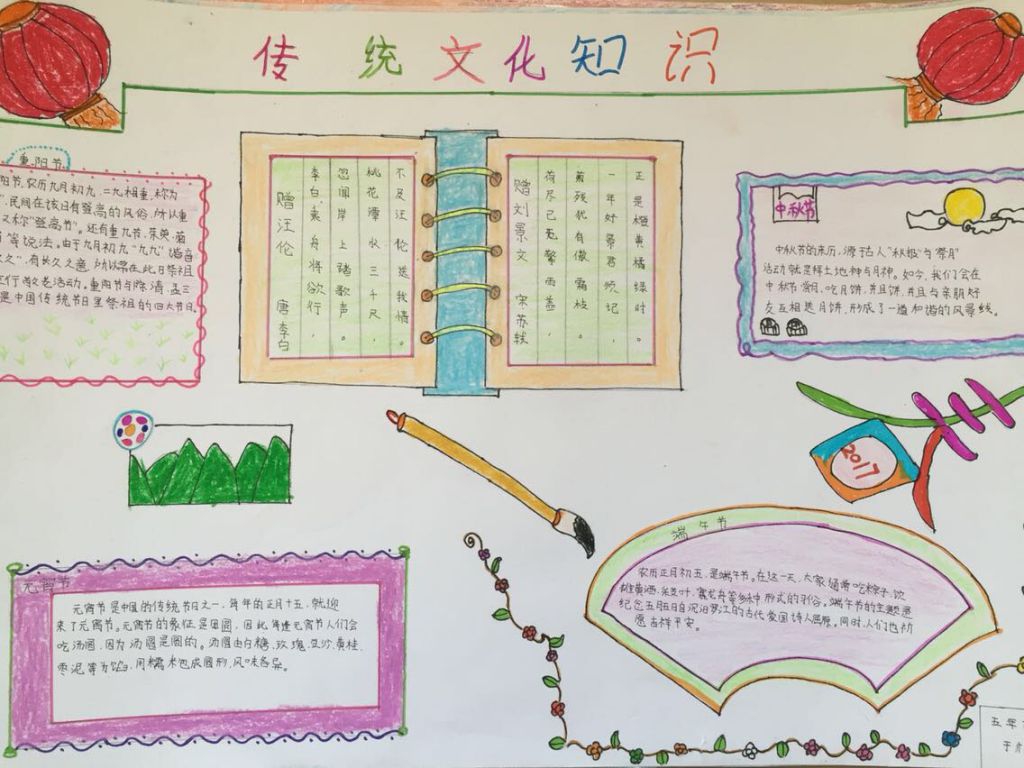 传统文化知识
重阳节
阳节,农历九月初九,二九相重,称为
",民间在该日有登高的风俗,所以重
又称"登高节"。还有重九节、茱萸、菊
等说法。由于九月初九"九九"谐音
久久",有长久之意,所以常在此日祭祖
行敬老活动。重阳节与除、清、盂三
是中国传统节日里祭祖的四大节日。
赠汪伦 唐 李白
李白乘舟将欲行,
忽闻岸上踏歌声。
桃花潭水三千尺,
不及汪伦送我情。
赠刘景文 宋 苏轼
荷尽已无擎雨盖,
菊残犹有傲霜枝。
一年好景君须记,
正是橙黄橘绿时。
中秋节
中秋节的来历,源于古人"秋报"与"祭月"
活动就是拜土地神与月神。如今,我们会在
中秋节赏月、吃月饼,并且饼,并且与亲朋好
友互相送月饼,形成了一道和谐的风景线。
2017
元宵节
元宵节是中国的传统节日之一,每年的正月十五,就迎
来了元宵节。元宵节的象征是团圆,因此每逢元宵节人们会
吃汤圆,因为汤圆是圆的。汤圆由白糖、玫瑰、豆沙、黄桂、
枣泥等为馅,用糯米包成圆形,风味各异。
端午节
农历正月初五,是端午节。在这一天,大家通常吃粽子、饮
雄黄酒、挂艾叶、赛龙舟等多种形式的习俗。端午节的主题是
纪念五月五日自沉汨罗江的古代爱国诗人屈原。同时,人们也祈
愿吉祥平安。
五年
于